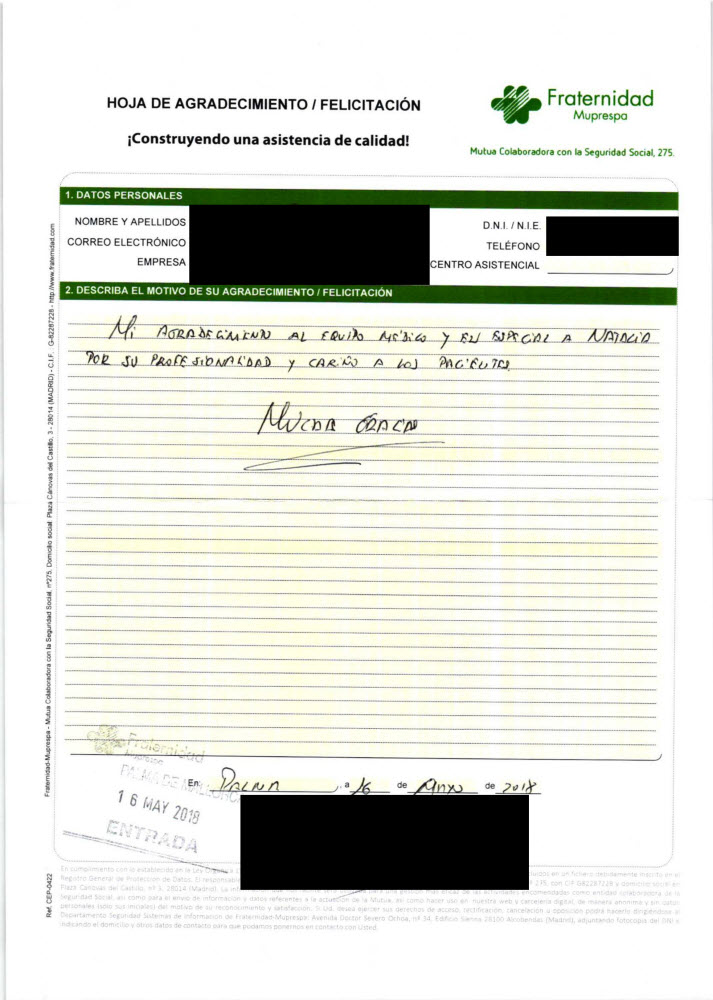 HOJA DE AGRADECIMIENTO / FELICITACIÓN
¡Construyendo una asistencia de calidad!
Fraternidad
Muprespa
Mutua Colaboradora con la Seguridad Social, 275.
1. DATOS PERSONALES
NOMBRE Y APELLIDOS
CORREO ELECTRÓNICO
EMPRESA
D.N.I. / N.I.E.
TELÉFONO
CENTRO ASISTENCIAL
2. DESCRIBA EL MOTIVO DE SU AGRADECIMIENTO / FELICITACIÓN
Mi AGRADECIMIENTO AL EQUIPO MÉDICO Y EN ESPECIAL A NATALIA
POR SU PROFESIONALIDAD Y CARIÑO A LOS PACIENTES
MUCHA GRACIAS
Fraternidad
Muprespa
PALMA DE MALLORCA
16 MAY 2018
ENTRADA
En PALMA, a 16 de MAYO de 2018
Fraternidad-Muprespa - Mutua Colaboradora con la Seguridad Social, nº275. Domicilio social: Plaza Cánovas del Castillo, 3 - 28014 (MADRID) - C.I.F.: G-82287228 - http://www.fraternidad.com
Ref. CEP-0422
En cumplimiento con lo establecido en la Ley Orgánica
Registro General de Protección de Datos. El responsable
Plaza Cánovas del Castillo, nº 3, 28014 (Madrid). La
Seguridad Social, así como para el envío de información y datos referentes a la actuación de la Mutua, así como hacer uso en nuestra web y cartelería digital, de manera anónima y sin datos
personales (sólo sus iniciales) del motivo de su reconocimiento y satisfacción. Si Ud. desea ejercer sus derechos de acceso, rectificación, cancelación u oposición podrá hacerlo dirigiéndose al
Departamento Seguridad Sistemas de Información de Fraternidad-Muprespa: Avenida Doctor Severo Ochoa, nº 34, Edificio Sienna 28100 Alcobendas (Madrid), adjuntando fotocopia del DNI e
indicando el domicilio y otros datos de contacto para que podamos ponernos en contacto con Usted.